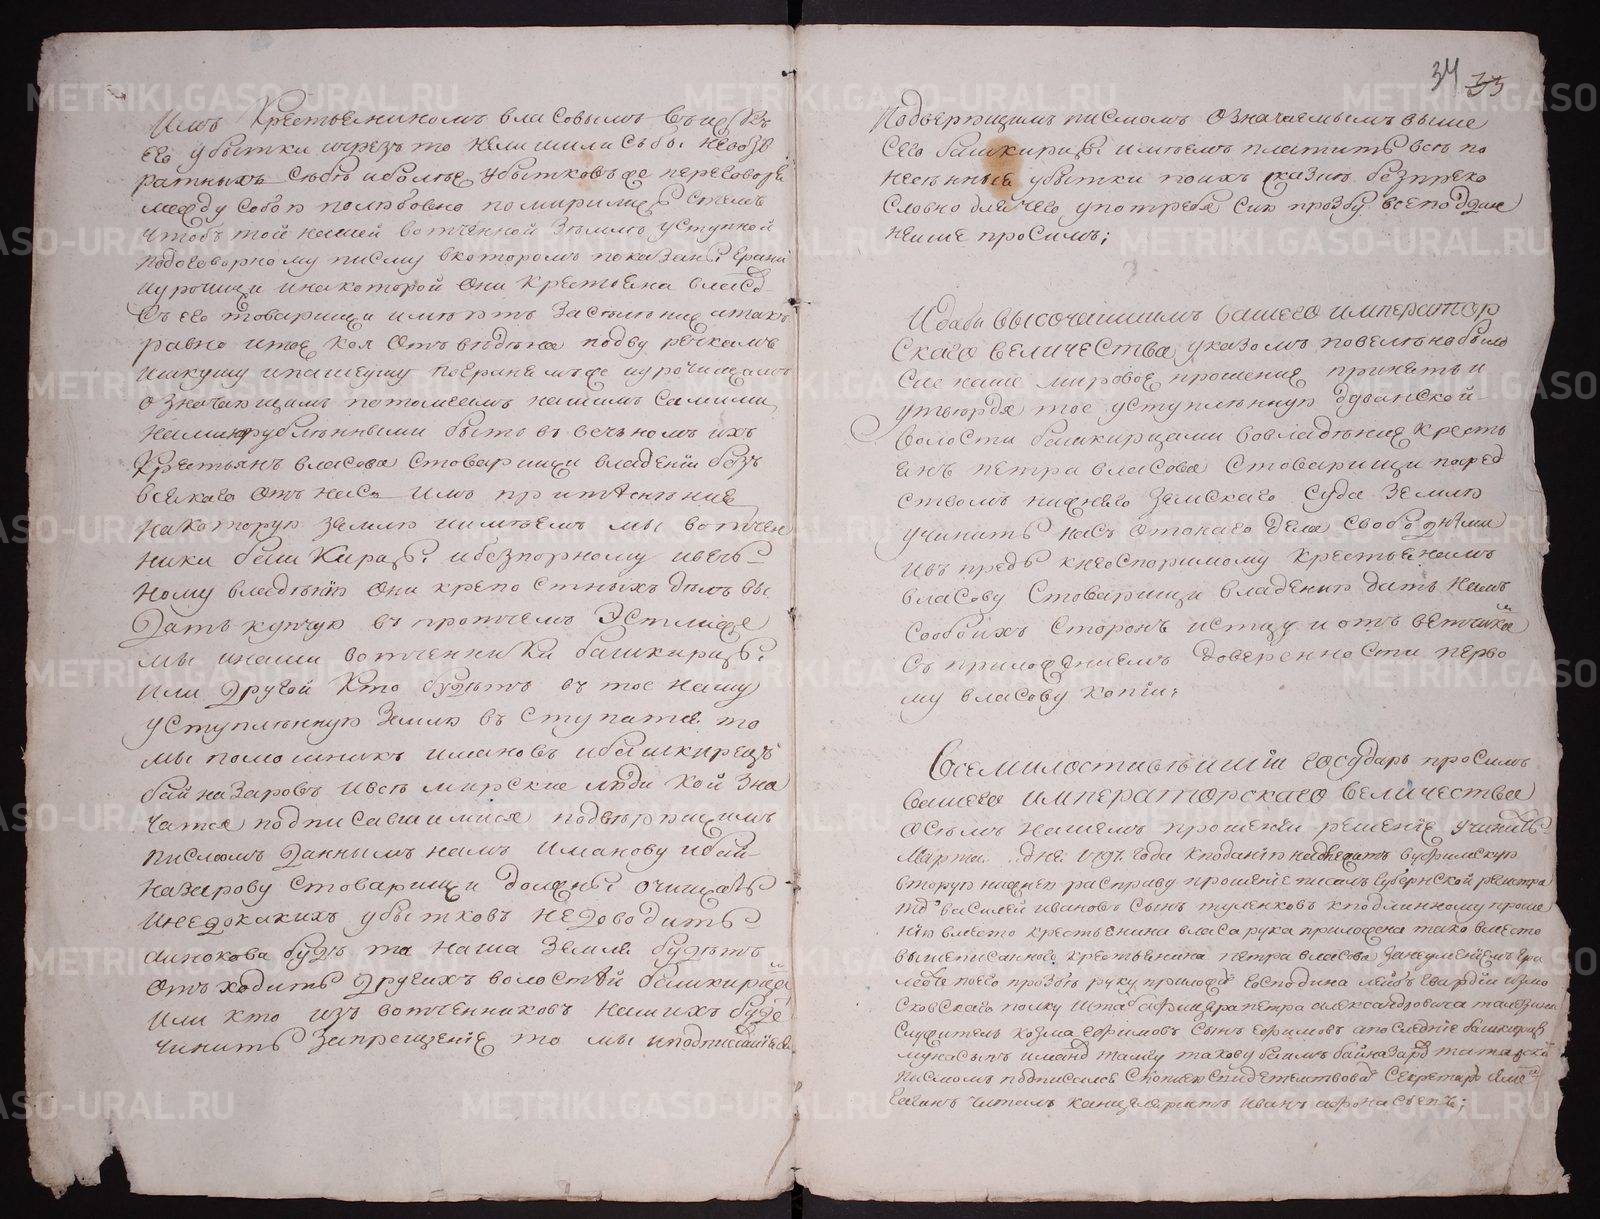 имъ крестьениномъ власовымъ
его убытки чрезъ то нелишили себе невозв
ратныхъ себѣ иболѣе убытковъ же переговоря
между собою полюбовно помирились стемъ
чтобъ той нашей вотченной землѣ уступной
подоговорному писму вкоторомъ показаны грани
иурочищи инакоторой они крестьена власов
съ его товарищи имѣютъ заселение итакъ
равно итое кол отъ ведена подву речкамъ
ишкушу ипашеушу погранемъ же иурочищамъ
означающимъ потомкамъ нашимъ самими
нами быть въ вечьномъ ихъ
крестьянъ власова стоварищи владении безъ
всякаго отъ насъ имъ притѣснение
накоторую землю иимѣемъ мы вотчен
ники башкирцы ибезпорному ивечь-
ному владѣнию они крепостныхъ дѣлъ вы
дать купчую въ протчемъ Эстлиже
мы инаши вотченники башкирцы
или другой кто будетъ въ тое нашу
уступленную землю въ ступатся то
мы помошникъ имановъ ибашкирецъ
байназаровъ ивсѣ мирские люди кой зна
чатся подписавшимися подверющимъ
писмомъ даннымъ намъ иманову ибай-
назарову стоварищи должны очищать
инедокакихъ убытковъ недоводить
аипокова буде та наша земля будетъ
отъ ходить другихъ волостей башкирцам
или кто изъ вотченниковъ нашихъ буде
чинить запрещение то мы иподписавшиеся
34 33
Подверющимъ писмомъ означаемымъ выше
сего башкирцы имѣемъ платить все по
несѣнные убытки поихъ сказке безпреко
словно длячего употребя сию прозбу всеподдан
неише просимъ;
Идабы высочайшимъ вашего император
скаго величества указомъ повелѣно было
сие наше мировое прошение принять и
утвердя тое уступленную дуванской
волости башкирцами вовладѣние кресть
енъ петра власова стоварищи посред
ствомъ нижнего земскаго суда землю
учинить насъ отонаго дела свободными
ивъ предь кнеоспоримому крестьенамъ
власову стоварищи владению дать намъ
сообоихъ сторонъ истцу и отъ ветчикамъ
съ приложениемъ доверенности перво
му власову копии;
Всемилостивѣйший государь просимъ
вашего императорскаго величества
осемъ нашемъ прошении решение учинить
Марта дня 1797 года кподанию надлежитъ вуфимскую
вторую нижнею расправу прошение писалъ губернской регистра
торъ василей ивановъ сынъ туленковъ кподлинному проше
нию вместо крестьенина власа рука приложена тако вместо
вышеписанного крестьенина петра власова занеумениемъ гра
моте поего прозбе руку приложилъ господина лейбъ гвардии измо
сковскаго полку петра александровича
служитель козма ефимовъ сынъ ефимовъ апоследние башкирцы
мунасыпъ имановъ тамгу такову бай назаровъ татарски
писмомъ подписался скопиею свидетельствовалъ секретарь
читалъ канцеляристъ иванъ афонасьевъ;